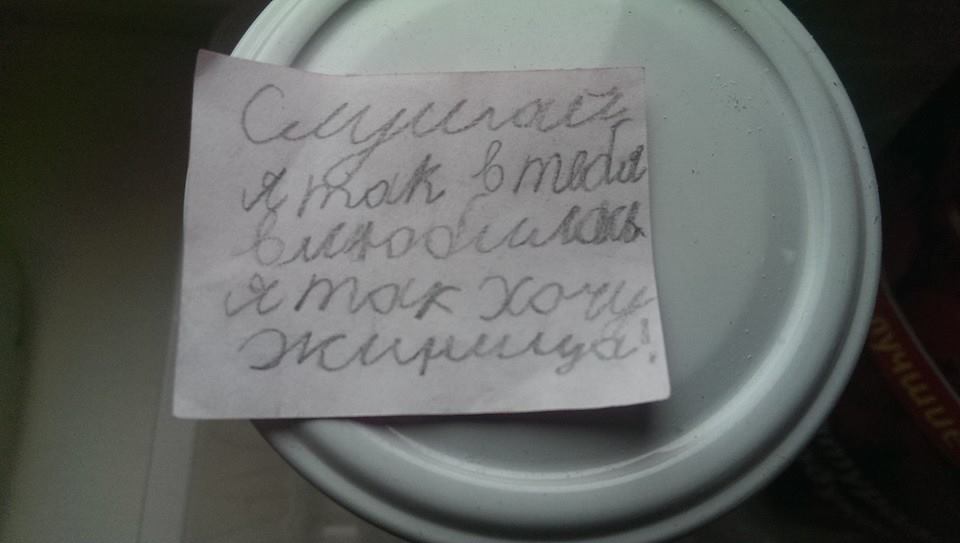 Слушай,
я так в тебя
влюбилась
я так хочу
жирница!
лучшие